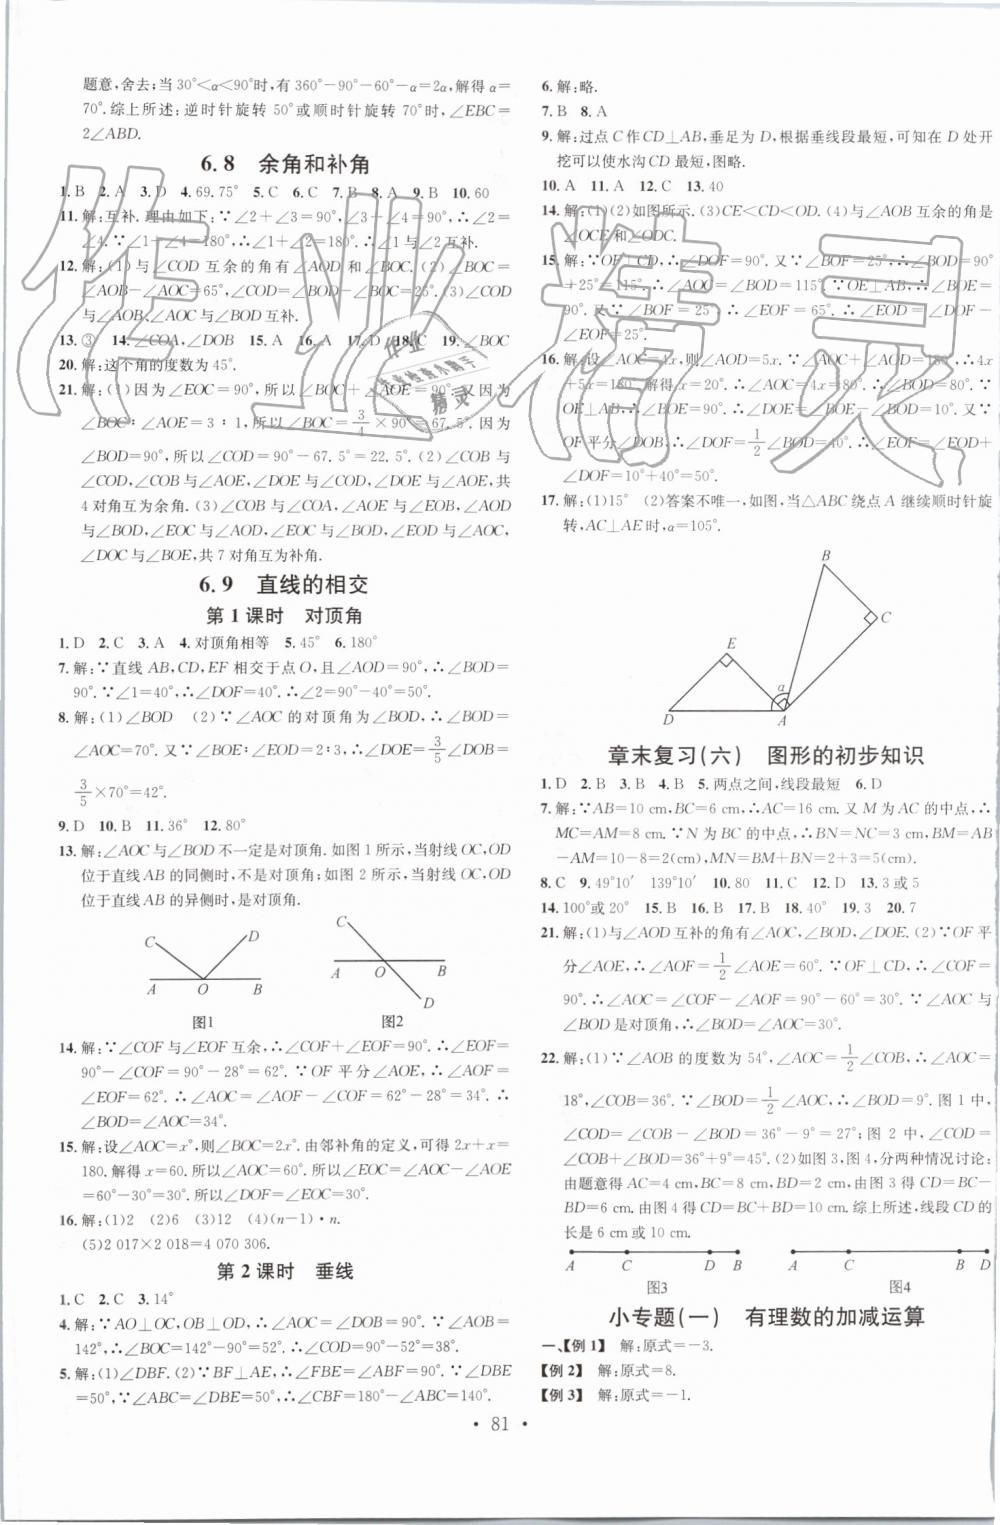 题意,舍去;当30°<α<90°时,有360°-90°-60°-α=2α,解得α=
70°.综上所述:逆时针旋转50°或顺时针旋转70°时,∠EBC=
2∠ABD.
6.8 余角和补角
1.B 2.A 3.D 4.69.75° 5.C 6.C 7.B 8.A 9.B 10.60
11.解:互补.理由如下:∵∠2+∠3=90°,∠3+∠4=90°,∴∠2=
∠4.∵∠1+∠4=180°,∴∠1+∠2=180°.∴∠1与∠2互补.
12.解:(1)与∠COD互余的角有∠AOD和∠BOC.(2)∠BOC=
∠AOB-∠AOC=65°,∠COD=∠BOD-∠BOC=25°.(3)∠COD
与∠AOB、∠AOC与∠BOD互补.
13.③ 14.∠COA,∠DOB 15.A 16.A 17.D 18.C 19.∠BOC
20.解:这个角的度数为45°.
21.解:(1)因为∠EOC=90°,所以∠BOC+∠AOE=90°.又因为
∠BOC:∠AOE=3:1,所以∠BOC=3/4×90°=67.5°.因为
∠BOD=90°,所以∠COD=90°-67.5°=22.5°.(2)∠COB与
∠COD,∠COB与∠AOE,∠DOE与∠COD,∠DOE与∠AOE,共
4对角互为余角.(3)∠COB与∠COA,∠AOE与∠EOB,∠AOD
与∠BOD,∠EOC与∠AOD,∠EOC与∠BOD,∠EOD与∠AOC,
∠DOC与∠BOE,共7对角互为补角.
6.9 直线的相交
第1课时 对顶角
1.D 2.C 3.A 4.对顶角相等 5.45° 6.180°
7.解:∵直线AB,CD,EF相交于点O,且∠AOD=90°,∴∠BOD=
90°.∵∠1=40°,∴∠DOF=40°.∴∠2=90°-40°=50°.
8.解:(1)∠BOD (2)∵∠AOC的对顶角为∠BOD,∴∠BOD=
∠AOC=70°.又∵∠BOE:∠EOD=2:3,∴∠DOE=3/5∠DOB=
3/5×70°=42°.
9.D 10.B 11.36° 12.80°
13.解:∠AOC与∠BOD不一定是对顶角.如图1所示,当射线OC,OD
位于直线AB的同侧时,不是对顶角;如图2所示,当射线OC,OD
位于直线AB的异侧时,是对顶角.
C D A O B 图1
C A O B D 图2
14.解:∵∠COF与∠EOF互余,∴∠COF+∠EOF=90°.∴∠EOF=
90°-∠COF=90°-28°=62°.∵OF平分∠AOE,∴∠AOF=
∠EOF=62°.∴∠AOC=∠AOF-∠COF=62°-28°=34°.∴
∠BOD=∠AOC=34°.
15.解:设∠AOC=x°,则∠BOC=2x°.由邻补角的定义,可得2x+x=
180.解得x=60.所以∠AOC=60°.所以∠EOC=∠AOC-∠AOE
=60°-30°=30°.所以∠DOF=∠EOC=30°.
16.解:(1)2 (2)6 (3)12 (4)(n-1)·n.
(5)2 017×2 018=4 070 306.
第2课时 垂线
1.C 2.C 3.14°
4.解:∵AO⊥OC,OB⊥OD,∴∠AOC=∠DOB=90°.∵∠AOB=
142°,∴∠BOC=142°-90°=52°.∴∠COD=90°-52°=38°.
5.解:(1)∠DBF.(2)∵BF⊥AE,∴∠FBE=∠ABF=90°.∵∠DBE
=50°,∴∠ABC=∠DBE=50°.∴∠CBF=180°-∠ABC=140°.
6.解:略.
7.B 8.A
9.解:过点C作CD⊥AB,垂足为D,根据垂线段最短,可知在D处开
挖可以使水沟CD最短,图略.
10.A 11.A 12.C 13.40
14.解:(1)(2)如图所示.(3)CE<CD<OD.(4)与∠AOB互余的角是
∠OCE和∠ODC.
15.解:∵OF⊥CD,∴∠DOF=90°.又∵∠BOF=25°,∴∠BOD=90°
+25°=115°.∴∠AOC=∠BOD=115°.∵OE⊥AB,∴∠BOE=
90°.又∵∠BOF=25°,∴∠EOF=65°.∴∠EOD=∠DOF-
∠EOF=25°.
16.解:设∠AOC=4x,则∠AOD=5x.∵∠AOC+∠AOD=180°,∴4x
+5x=180°.解得x=20°.∴∠AOC=4x=80°.∴∠BOD=80°.∵
OE⊥AB,∴∠BOE=90°.∴∠EOD=∠BOE-∠BOD=10°.又∵
OF平分∠DOB,∴∠DOF=1/2∠BOD=40°.∴∠EOF=∠EOD+
∠DOF=10°+40°=50°.
17.解:(1)15° (2)答案不唯一,如图,当△ABC绕点A继续顺时针旋
转,AC⊥AE时,α=105°.
B C E α D A
章末复习(六) 图形的初步知识
1.D 2.B 3.B 4.B 5.两点之间,线段最短 6.D
7.解:∵AB=10 cm,BC=6 cm,∴AC=16 cm.又M为AC的中点,∴
MC=AM=8 cm.∵N为BC的中点,∴BN=NC=3 cm,BM=AB
-AM=10-8=2(cm),MN=BM+BN=2+3=5(cm).
8.C 9.49°10′ 139°10′ 10.80 11.C 12.D 13.3或5
14.100°或20° 15.B 16.B 17.B 18.40° 19.3 20.7
21.解:(1)与∠AOD互补的角有∠AOC,∠BOD,∠DOE.(2)∵OF平
分∠AOE,∴∠AOF=1/2∠AOE=60°.∵OF⊥CD,∴∠COF=
90°.∴∠AOC=∠COF-∠AOF=90°-60°=30°.∵∠AOC与
∠BOD是对顶角,∴∠BOD=∠AOC=30°.
22.解:(1)∵∠AOB的度数为54°,∠AOC=1/2∠COB,∴∠AOC=
18°,∠COB=36°.∵∠BOD=1/2∠AOC,∴∠BOD=9°.图1中,
∠COD=∠COB-∠BOD=36°-9°=27°;图2中,∠COD=
∠COB+∠BOD=36°+9°=45°.(2)如图3,图4,分两种情况讨论:
由题意得AC=4 cm,BC=8 cm,BD=2 cm.由图3得CD=BC-
BD=6 cm.由图4得CD=BC+BD=10 cm.综上所述,线段CD的
长是6 cm或10 cm.
A C D B 图3
A C B D 图4
小专题(一) 有理数的加减运算
一、【例1】 解:原式=-3.
【例2】 解:原式=8.
【例3】 解:原式=-1.
·81·
作业精灵
作业
精灵